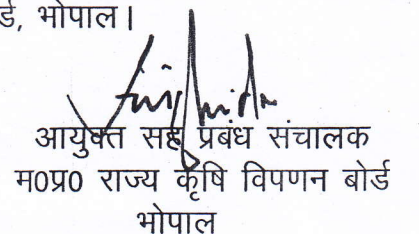 र्ड, भोपाल।
आयुक्त सह प्रबंध संचालक
म0प्र0 राज्य कृषि विपणन बोर्ड
भोपाल